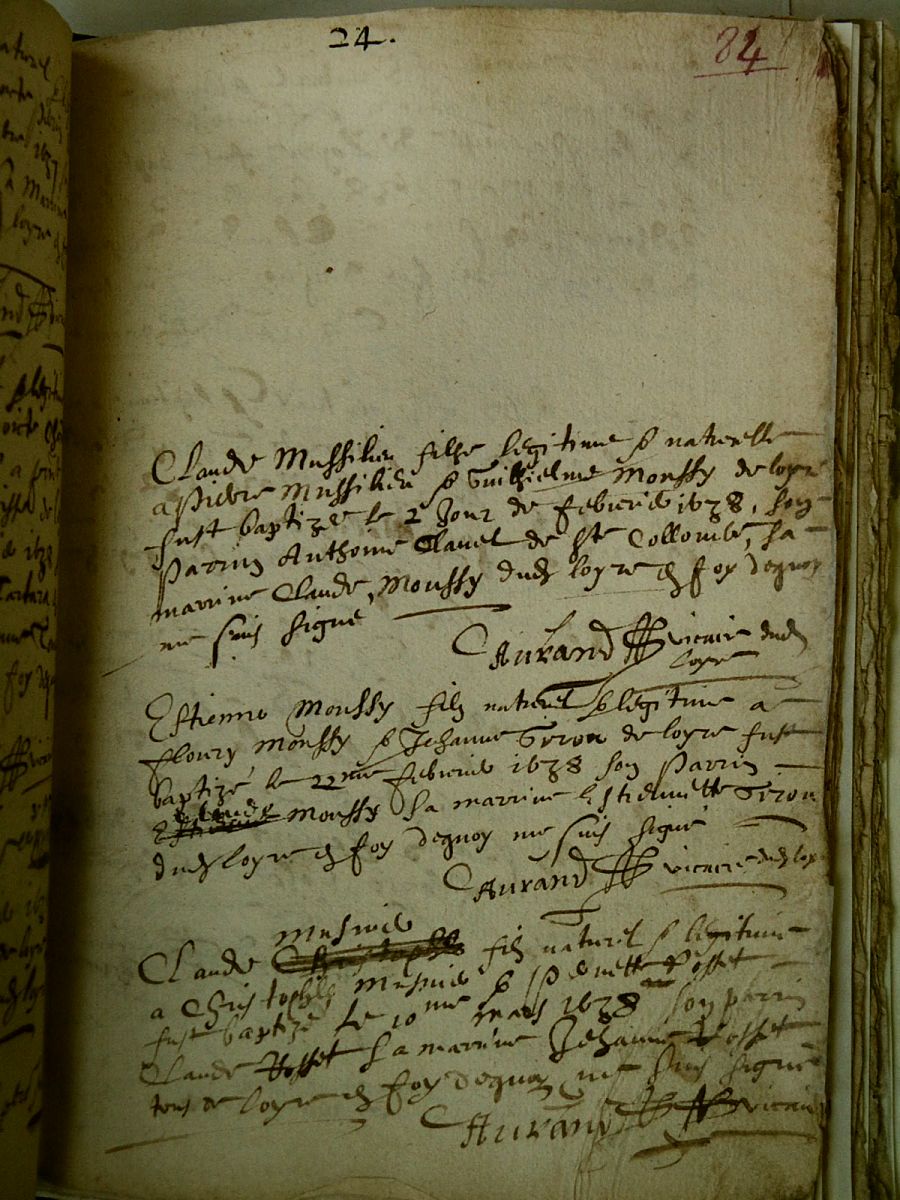 24.
84
Claude Mussilieu fille legitime & naturelle
a Pierre Mussilieu & Guilhielme Moussy de loyre
fust baptizée le 2 Jour de febvrier 1638, son
Parrin Anthoine Clavel de Ste Collombe, sa
marrine Claude Moussy dud loyre en foy dequoy
me suis signé
Aurand vicaire dud
loyre
Estienne Moussy filz naturel & legitime a
fleury Moussy & Jehanne Giron de loyre fust
baptizé le 22me febvrier 1638 son Parrin
Claude Moussy sa marrine Estiennette Giron
dud loyre en foy dequoy me suis signé
Aurand vicaire dud loyre
Musnier
Claude Christophle filz naturel & legitime
a Christophle Musnier & Pernette Posset
fust baptizé le 10me mars 1638 son parrin
Claude Posset sa marrine Jehanne Posset
tous de loyre en foy dequoy me suis signé
Aurand vicaire